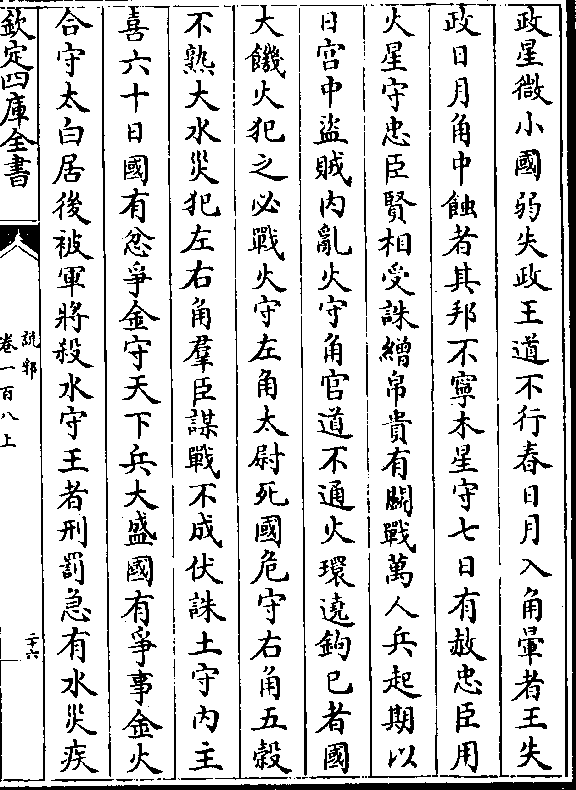 政星微小國弱失政王道不行春日月入角暈者王失
政日月角中蝕者其邦不寧木星守七日有赦忠臣用
火星守忠臣賢相受誅繒帛貴有鬬戰萬人兵起期以
日宫中盜賊内亂火守角官道不通火環遶鈎巳者國
大饑火犯之必戰火守左角太尉死國危守右角五穀
不熟大水災犯左右角羣臣謀戰不成伏誅土守内主
喜六十日國有忿爭金守天下兵大盛國有爭事金火
合守太白居後被軍將殺水守王者刑罰急有水災疾
欽定四庫全書
説郛
卷一百八上
二十六